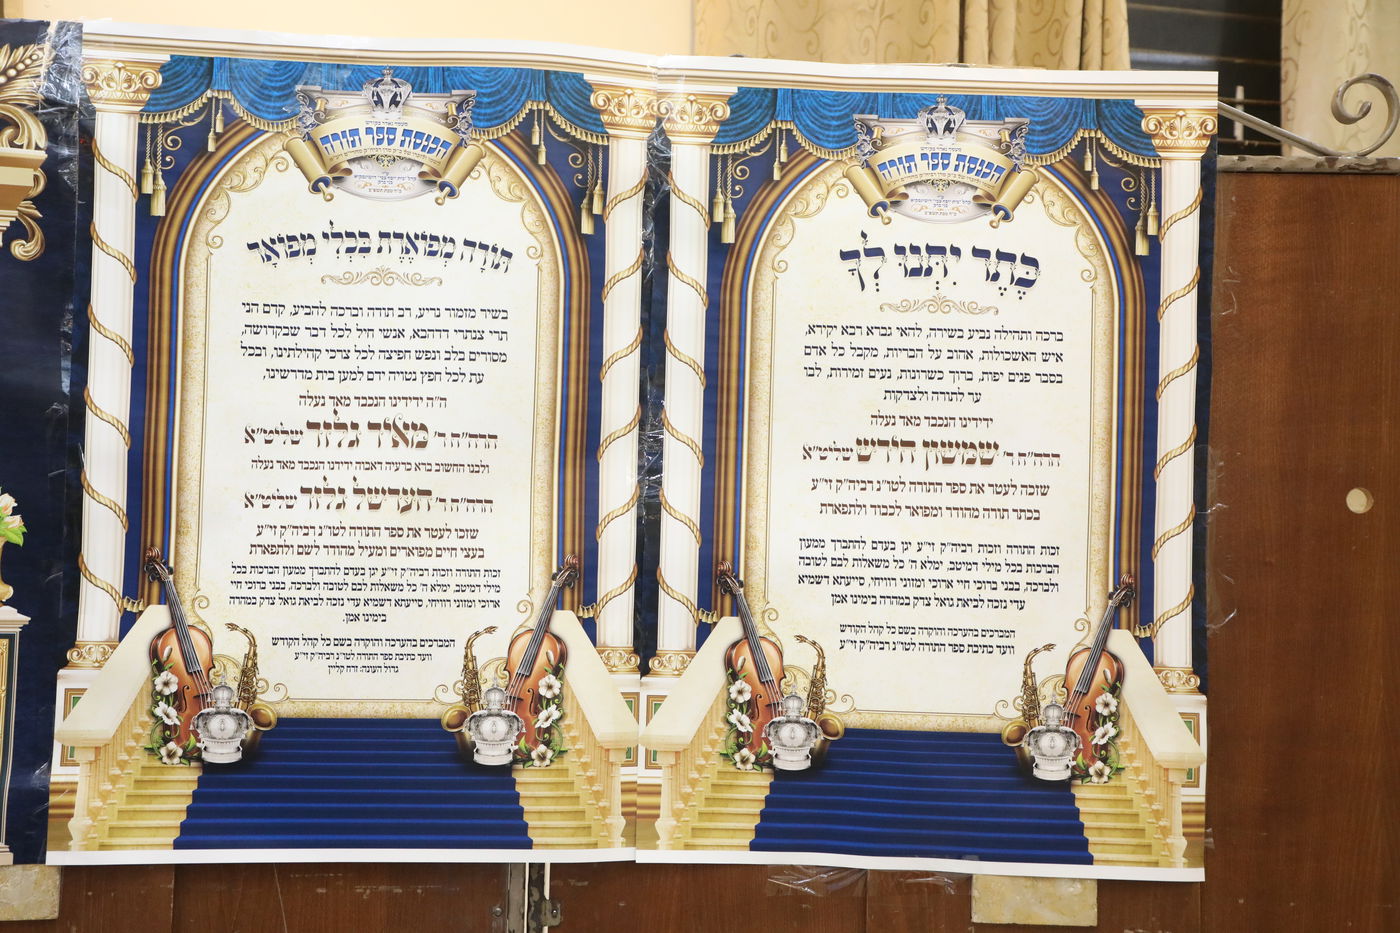 מעמד נאדר בקודש
הכנסת ספר תורה
תודה מפוארת בכלי מפואר
בשיר מזמור נריע, רב תודה וברכה להביע, קדם הני
תרי צנתרי דדהבא, אנשי חיל לכל דבר שבקדושה,
מסורים בלב ונפש חפיצה לכל צרכי קהילתינו, ובכל
עת לכל חפץ נטויה ידם למען בית מדרשינו,
ה"ה ידידינו הנכבד מאד נעלה
הרה"ח ר' מאיר גלזר שליט"א
ולבנו החשוב ברא כרעיה דאבוה ידידינו הנכבד מאד נעלה
הרה"ח ר' הערשל גלזר שליט"א
שזכו לעטר את ספר התורה לטו"נ רביה"ק זי"ע
בעצי חיים מפוארים ומעיל מהודר לשם ולתפארת
זכות התורה וזכות רביה"ק זי"ע יגן בעדם להתברך ממעון הברכות בכל
מילי דמיטב, ימלא ה' כל משאלות לבם לטובה ולברכה, בבני ברוכי חיי
אריכי ומזוני רוויחי, סייעתא דשמיא עדי נזכה לביאת גואל צדק במהרה
בימינו אמן.
המברכים בהערכה והוקרה בשם כל קהל הקודש
וועד כתיבת ספר התורה לטו"נ רביה"ק זי"ע
גדול העונה: זרח קליין
מעמד נאדר בקודש
הכנסת ספר תורה
כתר יתנו לך
ברכה ותהילה נביע בשירה, להאי גברא רבא יקירא,
איש האשכולות, אהוב על הבריות, מקבל כל אדם
בסבר פנים יפות, ברוך כשרונות, נעים זמירות, לבו
ער לתורה ולצדקות
ידידינו הנכבד מאד נעלה
הרה"ח ר' שמשון הירש שליט"א
שזכה לעטר את ספר התורה לטו"נ רביה"ק זי"ע
בכתר תורה מהודר ומפואר לכבוד ולתפארת
זכות התורה וזכות רביה"ק זי"ע יגן בעדם להתברך ממעון
הברכות בכל מילי דמיטב, ימלא ה' כל משאלות לבם לטובה
ולברכה, בבני ברוכי חיי אריכי ומזוני רוויחי, סייעתא דשמיא
עדי נזכה לביאת גואל צדק במהרה בימינו אמן
המברכים בהערכה והוקרה בשם כל קהל הקודש
וועד כתיבת ספר התורה לטו"נ רביה"ק זי"ע